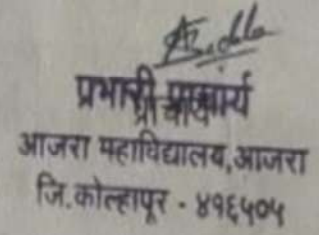 प्रभारी प्राचार्य
आजरा महाविद्यालय,आजरा
जि.कोल्हापूर - ४१६५०५